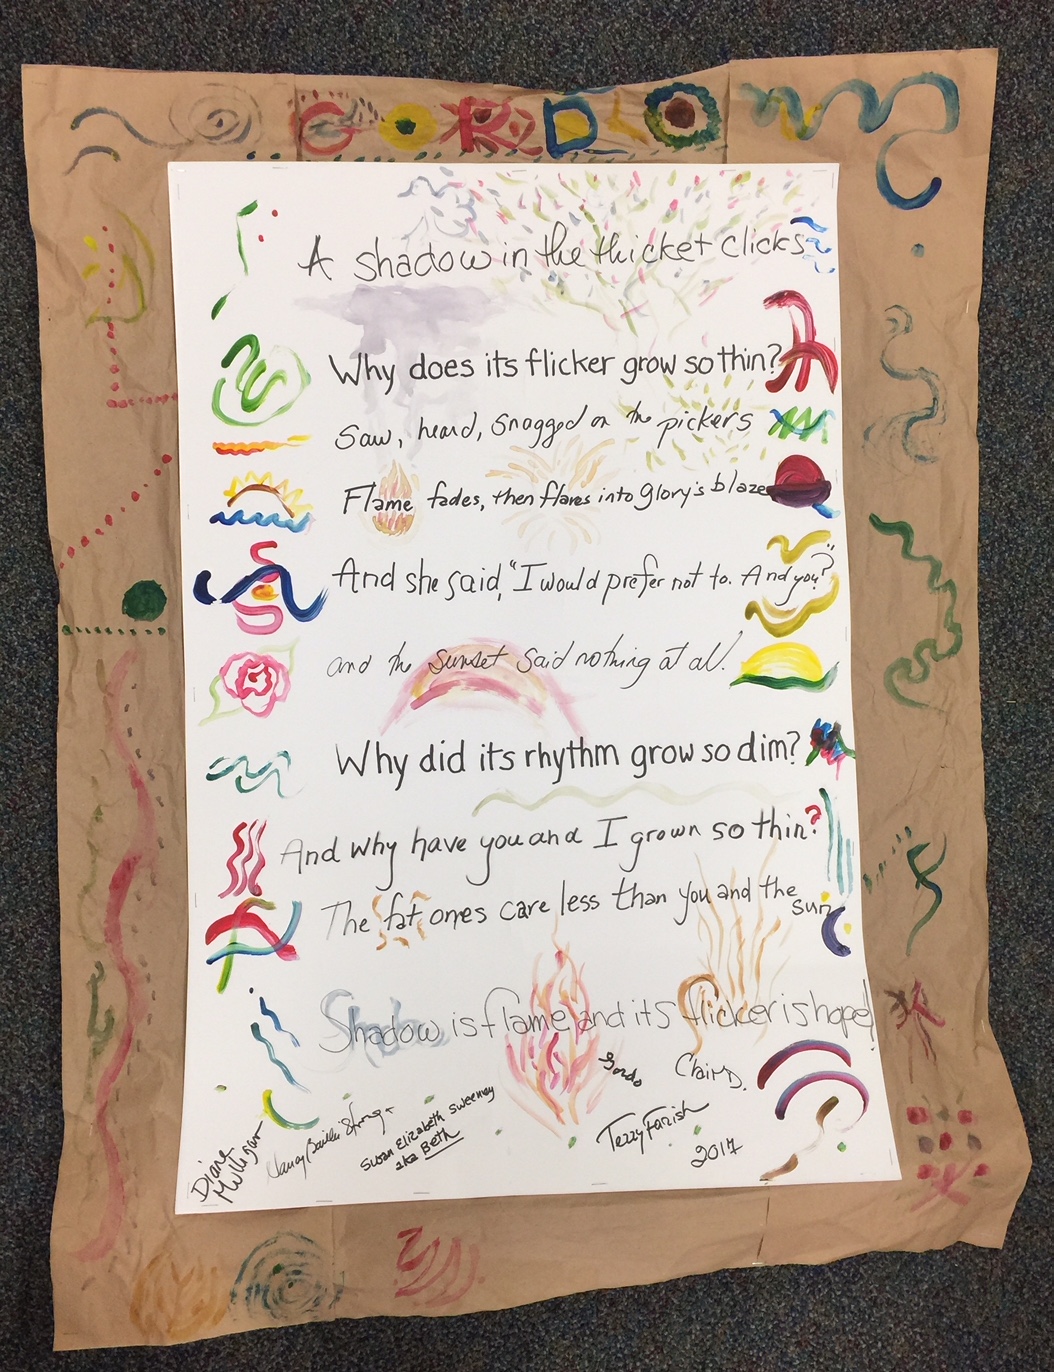 GORDO
A shadow in the thicket clicks
Why does its flicker grow so thin?
Saw, heard, snagged on the pickers
Flame fades, then flares into glory's blaze
And she said, "I would prefer not to. And you?"
and the sunset said nothing at all.
Why did its rhythm grow so dim?
And why have you and I grown so thin?
The fat ones care less than you and the
sun
Shadow is flame and its flicker is hope!
Gordo
Clair D.
Diane
Mulligan
Nancy
Susan Elizabeth Sweeney
aka Beth
Terry Farish
2017